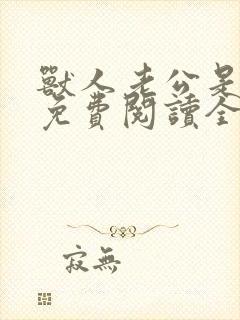 獸人老公是
免費閱讀全
寂無